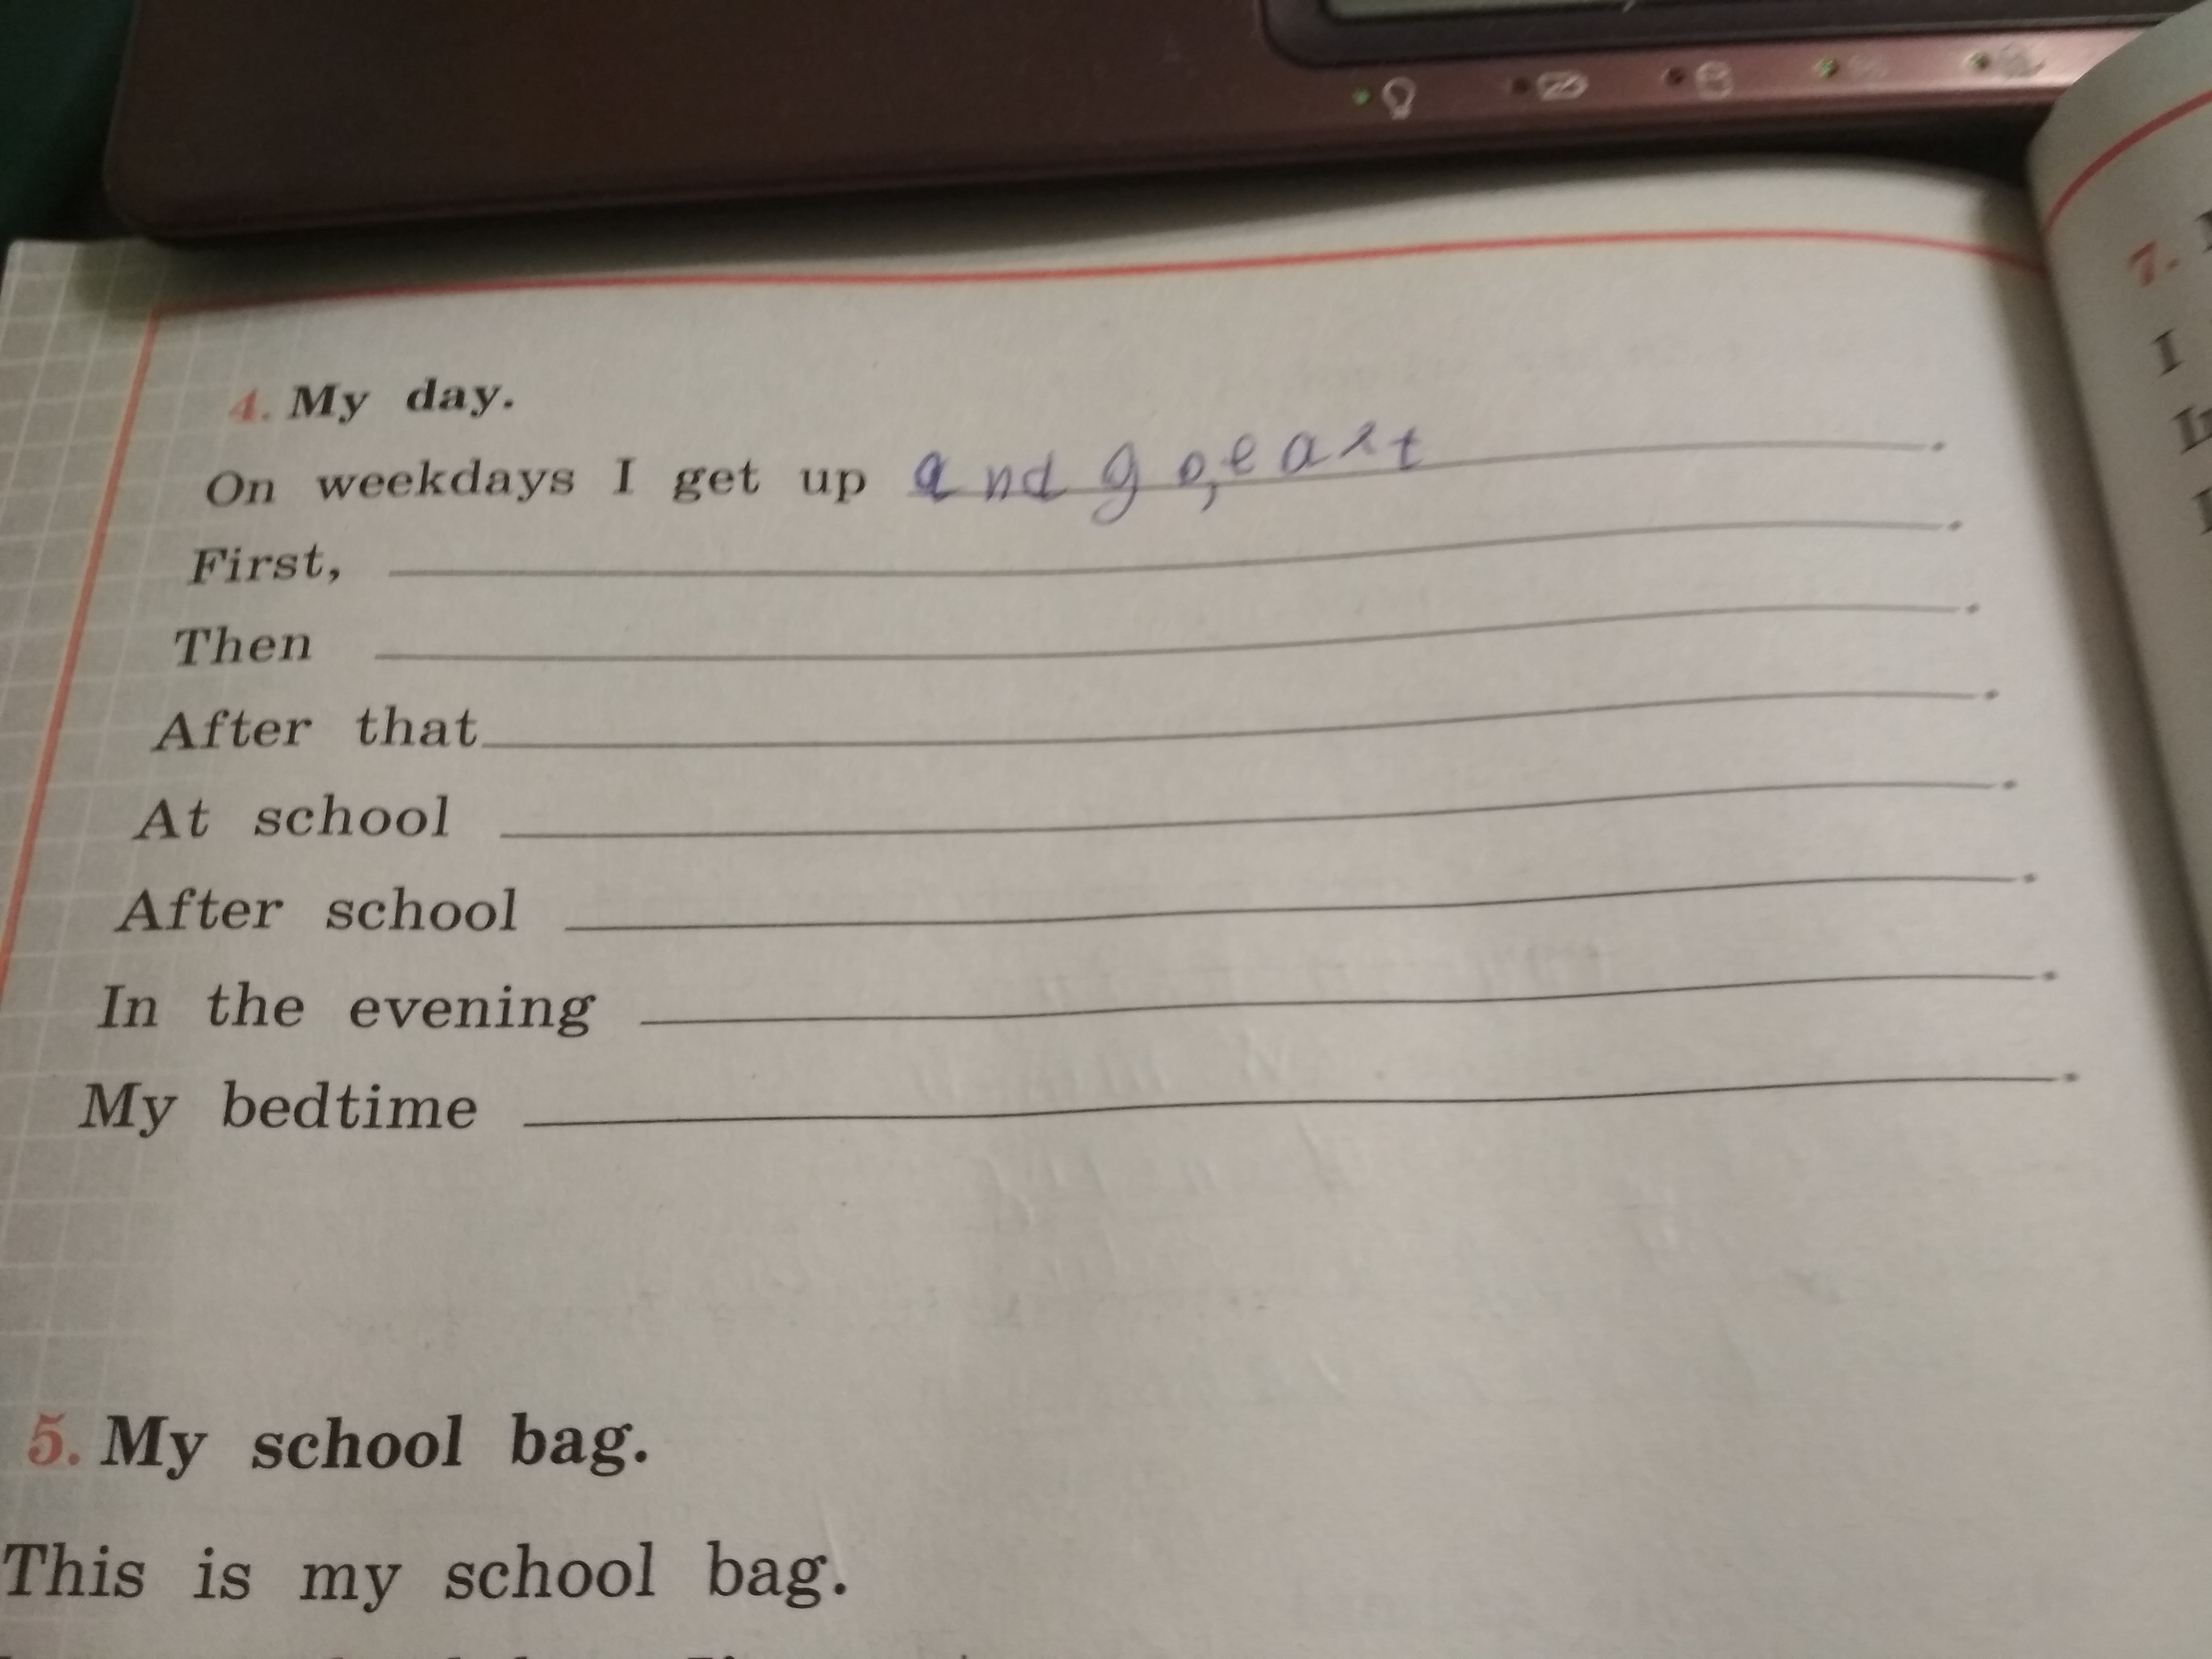 4. My day.
On weekdays I get up and go, eaxt .
First, .
Then .
After that .
At school .
After school .
In the evening .
My bedtime .
5. My school bag.
This is my school bag.
7.
I